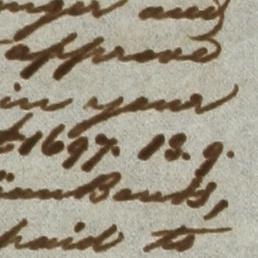 and
approve
in your
1697. 13. 9.
Banks,
paid to